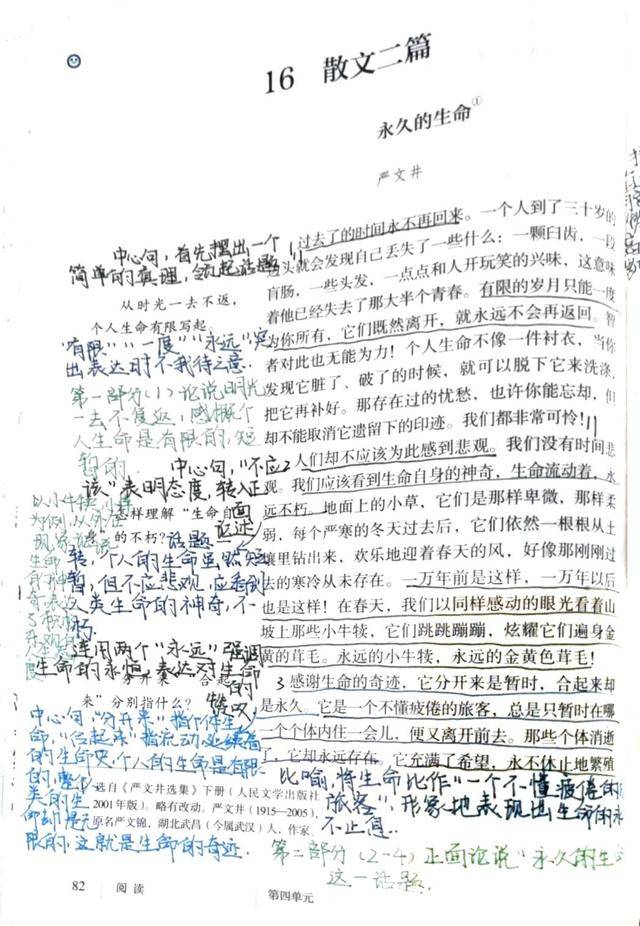 16 散文二篇
永久的生命①
严文井
过去了的时间永不再回来。一个人到了三十岁的
边头就会发现自己丢失了一些什么：一颗臼齿，一段
盲肠，一些头发，一点点和人开玩笑的兴味，这意味
着他已经失去了那大半个青春。有限的岁月只能一度
为你所有，它们既然离开，就永远不会再返回。智
者对此也无能为力！个人生命不像一件衬衣，当你
发现它脏了、破了的时候，就可以脱下它来洗涤，
把它再补好。那存过在的忧愁，也许你能忘却，但
却不能取消它遗留下的印迹。我们都非常可怜！
2 人们却不应该为此感到悲观。我们没有时间悲
观。我们应该看到生命自身的神奇，生命流动着，永
远不朽。地面上的小草，它们是那样卑微，那样柔
弱，每个严寒的冬天过去后，它们依然一根根从土
壤里钻出来，欢乐地迎着春天的风，好像那刚刚过
去的寒冷从未存在。一万年前是这样，一万年以后
也是这样！在春天，我们以同样感动的眼光看着山
坡上那些小牛犊，它们跳跳蹦蹦，炫耀它们遍身金
黄的茸毛。永远的小牛犊，永远的金黄色茸毛！
3 感谢生命的奇迹，它分开来是暂时，合起来却
是永久。它是一个不懂疲倦的旅客，总是只暂时在哪
一个个体内住一会儿，便又离开前去。那些个体消逝
了，它却永远存在。它充满了希望，永不休止地繁殖
中心句，首先摆出一个
简单的真理，领起话题
从时光一去不返，
个人生命有限写起。
"有限""一度""永远"突
出表达时不我待之意.
第一部分(1)论说时光
一去不复返，感慨个
人生命是有限的、短
暂的.
中心句，"不应
该"表明态度，转入正面
论述
怎样理解"生命自
身"的不朽？
话题一
转，个人的生命虽然短
暂，但不应悲观，应看到
人类生命的神奇，不
朽.
连用两个"永远"强调
生命的永恒，表达对生命
的
赞叹
"分开来""合起
来"分别指什么？
中心句."分开来"指个体生
命，"合起来"指流动延续着
的生命史，个人的生命是有限
的，整个
类的生
命却是无
限的，这就是生命的奇迹.
比喻，将生命比作"一个不懂疲倦的
旅客"，形象地表现出生命的永
不止息.
第二部分(2-4)正面论说"永久的生
这一话题.
选自《严文井选集》下册（人民文学出版社
2001年版）。略有改动。严文井（1915—2005），
原名严文锦，湖北武昌（今属武汉）人，作家。
82 阅读
第四单元